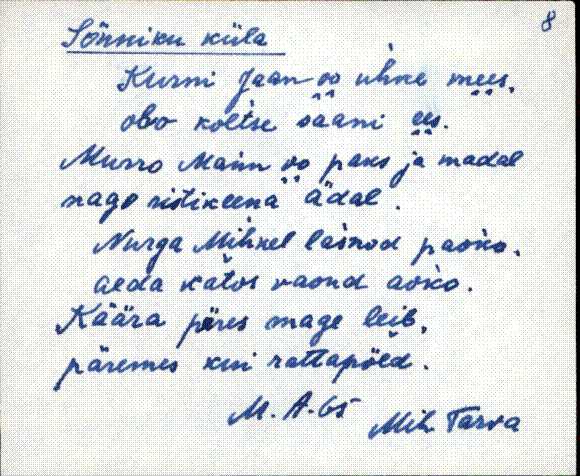 8
Sõnniku küla
Kurni Jaan oo uhke mees,
obo koltse saani ees.
Murro Mainn oo paks ja madal
nago ristikeena ädal.
Nurga Mihkel lasnod paoko,
aeda katos vaond aoko.
Käära peres mage leib,
päremes kui rattapöld.
M. A. 65
Mih. Tarva